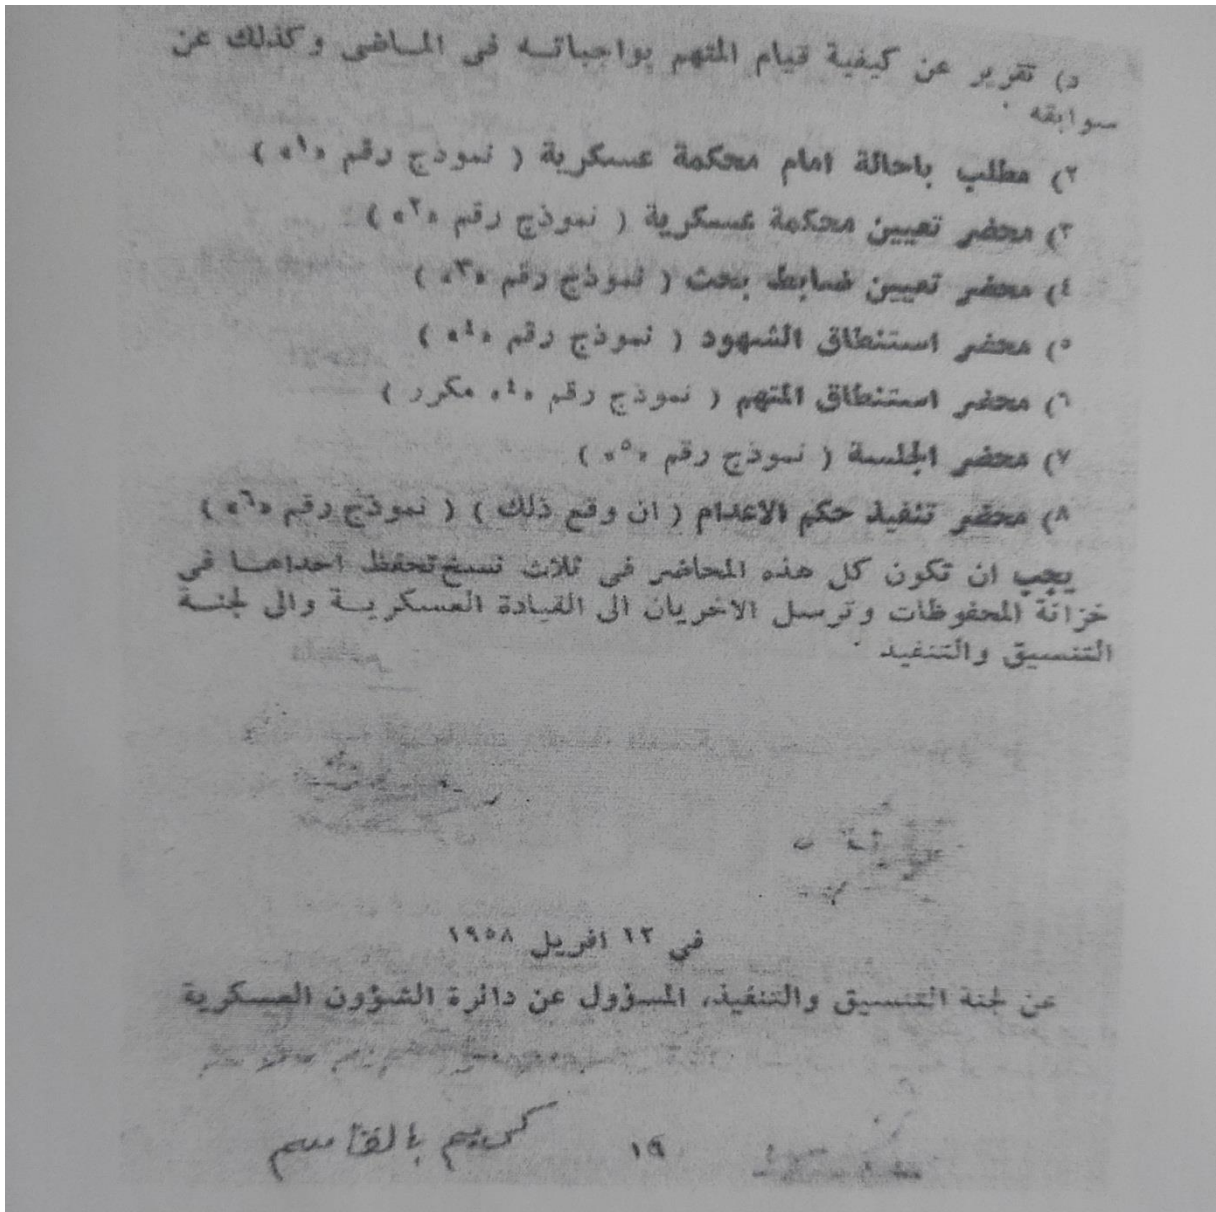 د) تقرير عن كيفية قيام المتهم بواجباتـه فى المـاضى وكذلك عن
سوابقه .
٢) مطلب باحالة امام محكمة عسكرية ( نموذج رقم «١» )
٣) محضر تعيين محكمة عسكرية ( نموذج رقم «٢» )
٤) محضر تعيين ضابط بحث ( نموذج رقم «٣» )
٥) محضر استنطاق الشهود ( نموذج رقم «٤» )
٦) محضر استنطاق المتهم ( نموذج رقم «٤» مكرر )
٧) محضر الجلسة ( نموذج رقم «٥» )
٨) محضر تنفيذ حكم الاعدام ( ان وقع ذلك ) ( نموذج رقم «٦» )
يجب ان تكون كل هذه المحاضر فى ثلاث نسخ تحفظ احداهـا فى
خزانة المحفوظات وترسل الاخريان الى القيادة العسكريـة والى لجنـة
التنسيق والتنفيذ .
فى ١٢ افريل ١٩٥٨
عن لجنة التنسيق والتنفيذ، المسؤول عن دائرة الشؤون العسكرية
كريم بالقاسم
١٩